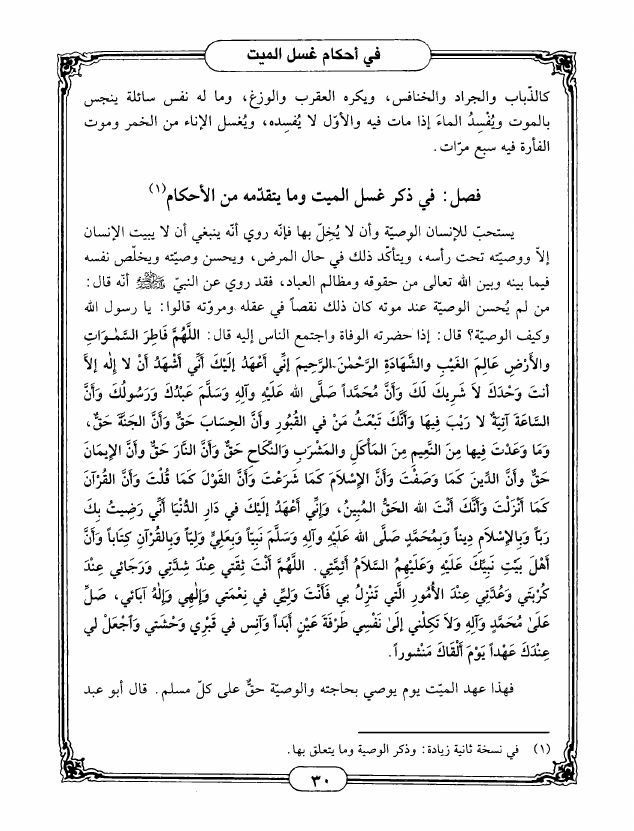 في أحكام غسل الميت
كالذّباب والجراد والخنافس، ويكره العقرب والوزغ، وما له نفس سائلة ينجس
بالموت ويُفْسِدُ الماءَ إذا مات فيه والأوّل لا يُفسِده، ويُغسل الإناء من الخمر وموت
الفأرة فيه سبع مرّات.
فصل: في ذكر غسل الميت وما يتقدّمه من الأحكام(١)
يستحبّ للإنسان الوصيّة وأن لا يُخِلّ بها فإنّه روي أنّه ينبغي أن لا يبيت الإنسان
إلاّ ووصيّته تحت رأسه، ويتأكّد ذلك في حال المرض، ويحسن وصيّته ويخلّص نفسه
فيما بينه وبين الله تعالى من حقوقه ومظالم العباد، فقد روي عن النبيّ ﷺ أنّه قال:
من لم يُحسن الوصيّة عند موته كان ذلك نقصاً في عقله ومروّته قالوا: يا رسول الله
وكيف الوصيّة؟ قال: إذا حضرته الوفاة واجتمع الناس إليه قال: اللَّهُمَّ فَاطِرَ السَّمٰوَاتِ
والأَرْضِ عَالِمَ الغَيْبِ والشَّهَادَةِ الرَّحْمٰنَ الرَّحِيمَ إنِّي أَعْهَدُ إلَيْكَ أَنِّي أَشْهَدُ أَنْ لا إلٰه إلاّ
أنتَ وَحْدَكَ لاَ شَرِيكَ لَكَ وَأَنَّ مُحَمَّداً صَلَّى الله عَلَيْهِ وآلِهِ وَسَلَّمَ عَبْدُكَ وَرَسُولُكَ وَأَنَّ
السَّاعَةَ آتِيَةٌ لا رَيْبَ فِيهَا وَأَنَّكَ تَبْعَثُ مَنْ في القُبُورِ وأَنَّ الحِسَابَ حَقٌّ وَأَنَّ الجَنَّةَ حَقٌّ،
وَمَا وَعَدْتَ فِيها مِنَ النَّعِيمِ مِنَ المَأْكَلِ والمَشْرَبِ وَالنِّكَاحِ حَقٌّ وَأَنَّ النَّارَ حَقٌّ وأَنَّ الإيمَانَ
حَقٌّ وأَنَّ الدِّينَ كَمَا وَصَفْتَ وَأَنَّ الإسْلاَمَ كَمَا شَرَعْتَ وَأَنَّ القَوْلَ كَمَا قُلْتَ وَأَنَّ القُرْآنَ
كَمَا أَنْزَلْتَ وَأَنَّكَ أَنْتَ الله الحَقُّ المُبِينُ، وَإنِّي أَعْهَدُ إلَيْكَ في دَارِ الدُّنْيَا أَنِّي رَضِيتُ بِكَ
رَبّاً وَبِالإسْلاَمِ دِيناً وَبِمُحَمَّدٍ صَلَّى الله عَلَيْهِ وآلِهِ وَسَلَّمَ نَبِيّاً وَبِعَلِيٍّ وَلِيّاً وَبِالقُرْآنِ كِتَاباً وَأَنَّ
أَهْلَ بَيْتِ نَبِيِّكَ عَلَيْهِ وَعَلَيْهِمُ السَّلاَمُ أَئِمَّتِي. اللَّهُمَّ أَنْتَ ثِقَتِي عِنْدَ شِدَّتِي وَرَجَائِي عِنْدَ
كُرْبَتِي وَعُدَّتِي عِنْدَ الأُمُورِ الَّتِي تَنْزِلُ بي فَأَنْتَ وَلِيِّي في نِعْمَتِي وَإلٰهِي وَإلٰهُ آبَائِي، صَلِّ
عَلَىٰ مُحَمَّدٍ وَآلِهِ وَلاَ تَكِلْنِي إلَىٰ نَفْسِي طَرْفَةَ عَيْنٍ أَبَداً وَآنِس في قَبْرِي وَحْشَتِي وَاجْعَلْ لي
عِنْدَكَ عَهْداً يَوْمَ أَلْقَاكَ مَنْشوراً.
فهذا عهد الميّت يوم يوصي بحاجته والوصيّة حقٌّ على كلّ مسلم. قال أبو عبد
(١) في نسخة ثانية زيادة: وذكر الوصية وما يتعلق بها.
٣٠